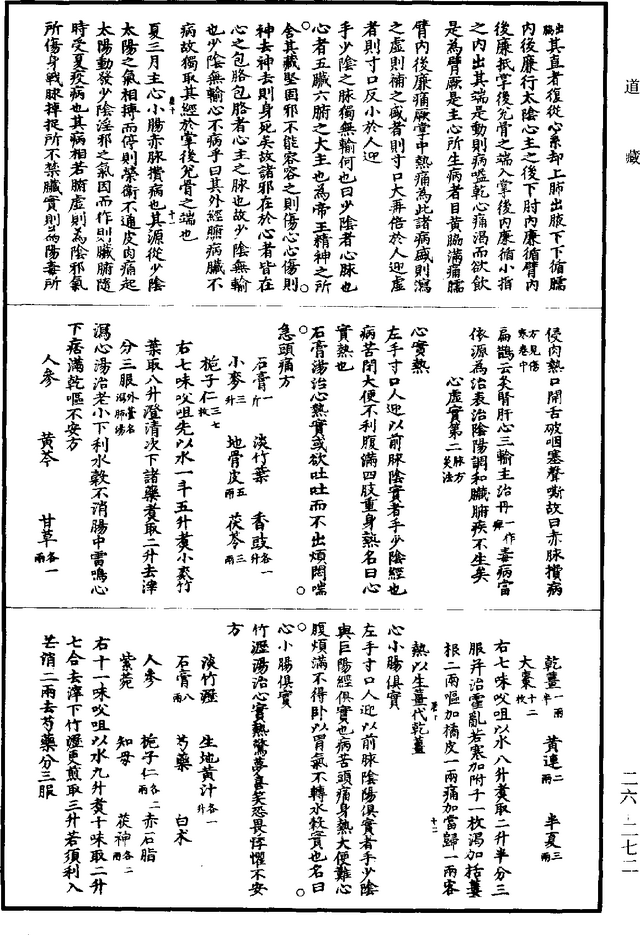 道藏
出其直者復從心系却上肺出腋下下循臑
内後廉行太陰心主之後下肘内廉循臂内
後廉抵掌後兌骨之端入掌後内廉循小指
之内出其端是動則病嗌乾心痛渴而欲飲
是為臂厥是主心所生病者目黄脇滿痛臑
臂内後廉痛厥掌中熱痛為此諸病盛則瀉
之虚則補之盛者則寸口大再倍於人迎虚
者則寸口反小於人迎
手少陰之脉獨無輸何也曰少陰者心脉也
心者五臟六腑之大主也為帝王精神之所
舍其藏堅固邪不能容容之則傷心心傷則
神去神去則身死矣故諸邪在於心者皆在
心之包絡包絡者心主之脉也故少陰無輸
也少陰無輸心不病乎曰其外經腑病臟不
病故獨取其經於掌後兌骨之端也
夏三月主心小腸赤脉攢病也其源從少陰
太陽之氣相搏而停則榮衛不通皮肉痛起
太陽動發少陰淫邪之氣因而作則臟腑隨
時受夏疫病也其病相若腑虚則為陰邪氣
所傷身戰脉掉捉所不禁臟實則為陽毒所
侵肉熱口開舌破咽塞聲嘶故曰赤脉攢病
方見傷寒卷中
扁鵲云灸腎肝心三輸主治丹一作毒病當
依源為治表治陰陽調和臟腑疾不生矣
心虚實第二脉方灸法
心實熱
左手寸口人迎以前脉陰實者手少陰經也
病苦閉大便不利腹滿四肢重身熱名曰心
實熱也
石膏湯治心熱實或欲吐吐而不出煩悶喘
急頭痛方
石膏一斤 淡竹葉 香豉各一升
小麥三升 地骨皮五兩 茯苓三兩
梔子仁三七枚
右七味㕮咀先以水一斗五升煮小麥竹
葉取八升澄清次下諸藥煮取二升去滓
分三服外臺名瀉肺湯
瀉心湯治老小下利水穀不消腸中雷鳴心
下痞滿乾嘔不安方
人參 黄芩 甘草各一兩
乾薑一兩半 黄連二兩 半夏三兩
大棗十二枚
右七味㕮咀以水八升煮取二升半分三
服并治霍亂若寒加附子一枚渴加括蔞
根二兩嘔加橘皮一兩痛加當歸一兩客
熱以生薑代乾薑
心小腸俱實
左手寸口人迎以前脉陰陽俱實者手少陰
與巨陽經俱實也病苦頭痛身熱大便難心
腹煩滿不得卧以胃氣不轉水穀實也名曰
心小腸俱實
竹瀝湯治心實熱驚夢喜笑恐畏悸懼不安
方
淡竹瀝 生地黄汁各一升
石膏八兩 芍藥 白术
人參 梔子仁各二兩 赤石脂
紫菀 知母 茯神各二兩
右十一味㕮咀以水九升煮十味取二升
七合去滓下竹瀝更煎取三升若須利入
芒硝二兩去芍藥分三服
二六-二七二